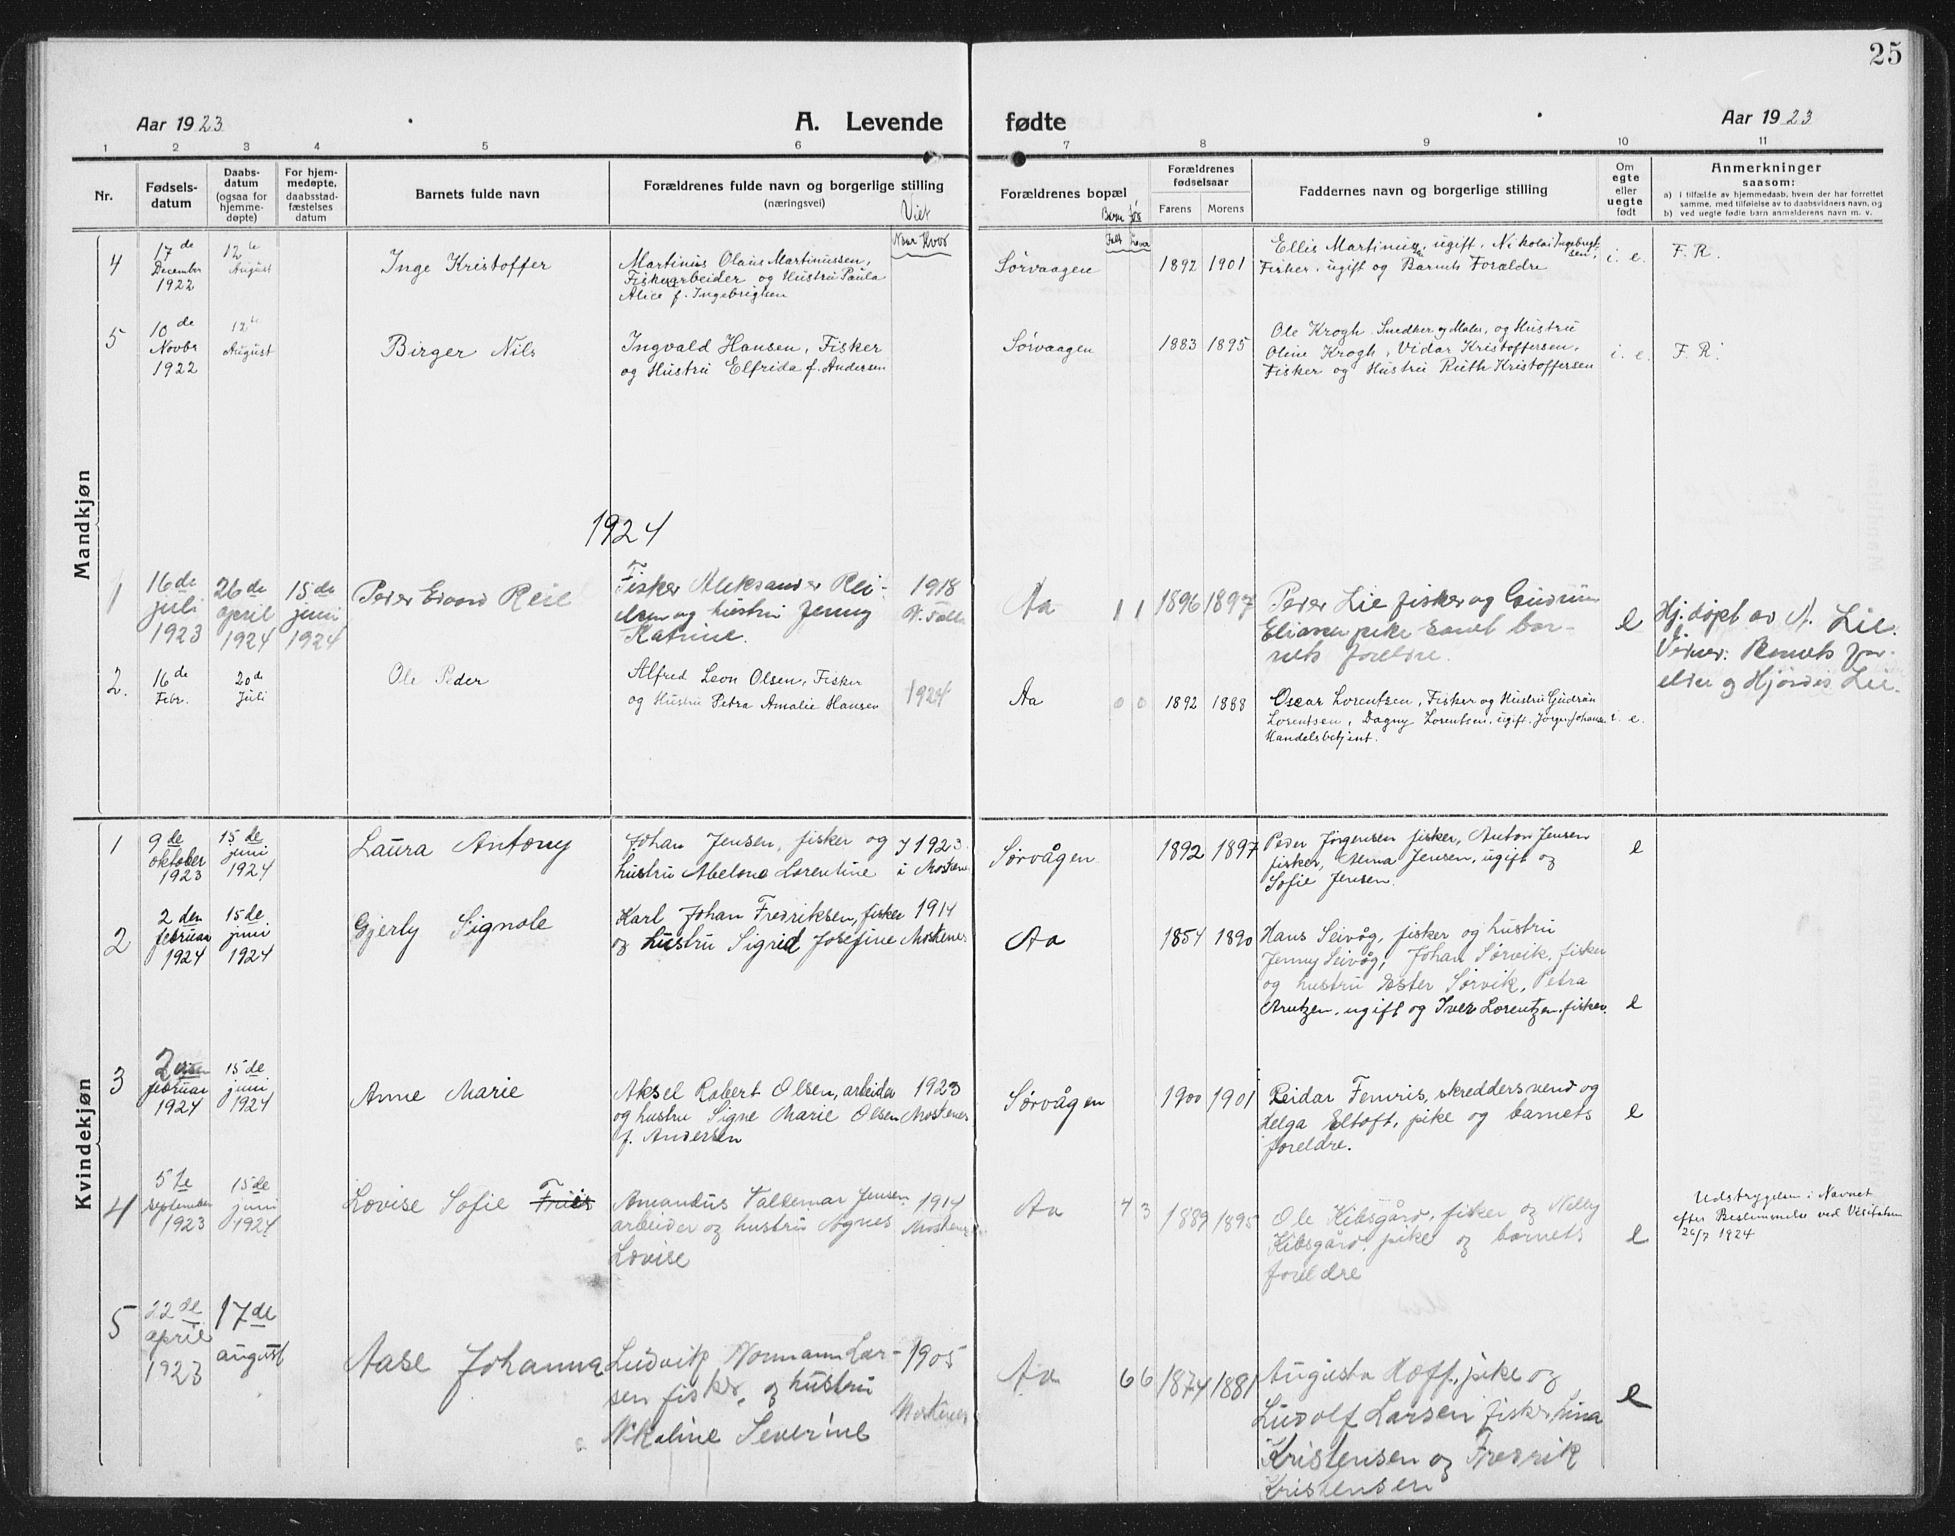 25
Aar 1923
A. Levende
fødte
Aar 1923
1 2 3 4 5 6 7 8 9 10 11
Nr.
Fødsels-
datum
Daabs-
datum
(ogsaa for
hjemme-
døpte)
For hjem-
medøpte,
daabsstad-
fæstelses
datum
Barnets fulde navn
Forældrenes fulde navn og borgerlige stilling
(næringsvei)
Viet
Naar Hvor
Forældrenes bopæl
Barn
Født
Forældrenes
fødselsaar
Farens
Morens
Faddernes navn og borgerlige stilling
Om
egte
eller
uegte
født
Anmerkninger
saasom:
a) i tilfælde av hjemmedaab, hvein der har forrettet
samme, med tilføielse av to daabsvidners navn, og
b) ved uegte fødte barn anmelderens navn m. v.
Mandkjøn
4
17de
December
1922
12te
August
Inge Kristoffer
Martinus Olaus Martinussen,
Fiskerarbeider og Hustru Paula
Alice f. Ingebrigtsen
Sørvaagen
1892 1901
Ellis Martinussen, ugift, Nikolai Ingebrigt-
sen,
Fisker, ugift og Barnets Forældre
i. e.
F. R.
5
10de
Novbr
1922
12te
August
Birger Nils
Ingvald Hansen, Fisker
og Hustru Elfrida f. Andersen
Sørvaagen
1883 1895
Ole Krogh, Snedker og Maler, og Hustru
Oline Krogh, Vidar Kristoffersen,
Fisker og Hustru Ruth Kristoffersen
i. e.
F. R.
1924
1
16de
juli
1923
26de
april
1924
15de
juni
1924
Peder Edvard Reie
Fisker Aleksander Rei-
elsen og hustru Jenny
Katrine.
1918
Aa
1 1
1896 1897
Peder Lie fisker og Gudrun
Eliassen pike samt bar-
nets foreldre.
e
Hj. døpt av A. Lie.
Vidner: Barnets for-
eldre og Hjørdis Lie.
2.
16de
Febr.
20de
Juli
Ole Peder
Alfred Leon Olsen, Fisker
og Hustru Petra Amalie Hansen
1924
Aa
0 0
1892 1888
Oscar Lorentsen, Fisker og Hustru Gudrun
Lorentsen, Dagny Lorentsen, ugift, Jørgen Johansen
Handelsbetjent.
i. e.
Kvindekjøn
1
9de
oktober
1923
15de
juni
1924
Laura Antony
Johan Jensen, fisker og
hustru Abelone Lorentine
1923
i Moskenes
Sørvågen
1892 1897
Peder Jørgensen fisker, Anton Jensen
fisker, Alma Jensen, ugift og
Sofie Jensen.
e
2
2den
februar
1924
15de
juni
1924
Gjerly Signole
Karl Johan Fredriksen, fisker
og hustru Sigrid Josefine
1914
Moskenes
Aa
1854 1890
Hans Seivåg, fisker og hustru
Jenny Seivåg, Johan Sørvik, fisker
og hustru Ester Sørvik, Petra
Arntzen, ugift og Iver Lorentzen, fisker.
e
3
2den
februar
1924
15de
juni
1924
Anne Marie
Aksel Robert Olsen, arbeider
og hustru Signe Marie Olsen
f. Andersen
1923
Moskenes
Sørvågen
1900 1901
Reidar Femris, skreddersvend og
Helga Eltoft, pike og barnets
foreldre.
e
4
5te
september
1923
15de
juni
1924
Lovise Sofie Friis
Amandus Valdemar Jensen
arbeider og hustru Agnes
Lovise
1914
Moskenes
Aa
4 3
1889 1895
Ole Kibsgård, fisker og Nelly
Kibsgård, pike og barnets
foreldre
e
Udstrygelsen i Navnet
efter Bestemmelse ved Visitatsen
26/7 1924
5
22de
april
1923
17de
august
Aase Johanna
Ludvig Normann Lar-
sen fisker, og hustru
Nikoline Severine
1905
Moskenes
Aa
6 6
1874 1881
Augusta Hoff, pike og
Ludolf Larsen fisker, Lina
Kristensen og Fredrik
Kristensen
e